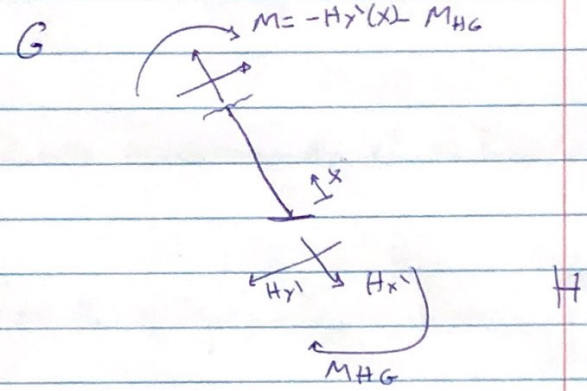 G
M = -Hy'(x) - MHG
x
Hy'
Hx'
H
MHG